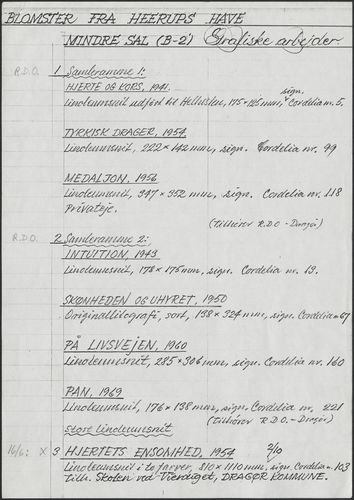 BLOMSTER FRA HEERUPS HAVE
MINDRE SAL (B-2) Grafiske arbejder.
R.D.O. 1 Samleramme 1:
HJERTE OG KORS, 1941. sign.
Linoleumsnit udført til Helhesten, 175 × 125 mm, Cordelia nr. 5.
TYRKISK DRAGER, 1954
Linoleumsnit, 222 × 142 mm, sign. Cordelia nr. 99
MEDALJON, 1956
Linoleumsnit, 347 × 352 mm, sign. Cordelia nr. 118
Privateje.
(Tilhører R.D.O - Dragør)
R.D.O. 2 Samleramme 2:
INTUITION, 1943
Linoleumsnit, 178 × 175 mm, sign. Cordelia nr. 13.
SKØNHEDEN OG UHYRET, 1950
Originallitografi, sort, 138 × 324 mm, sign. Cordelia nr 67
PÅ LIVSVEJEN, 1960
Linoleumsnit, 285 × 306 mm, sign. Cordelia nr. 160
PAN, 1969
Linoleumsnit, 176 × 138 mm, sign. Cordelia nr. 221
(Tilhører R.D.O - Dragør)
Stort linoleumsnit
16/6: X 3 HJERTETS ENSOMHED, 1954 2/10
Linoleumsnit i to farver, 810 × 1110 mm, sign. Cordelia nr. 103
tilh. Skolen ved Vierdiget, DRAGØR KOMMUNE.